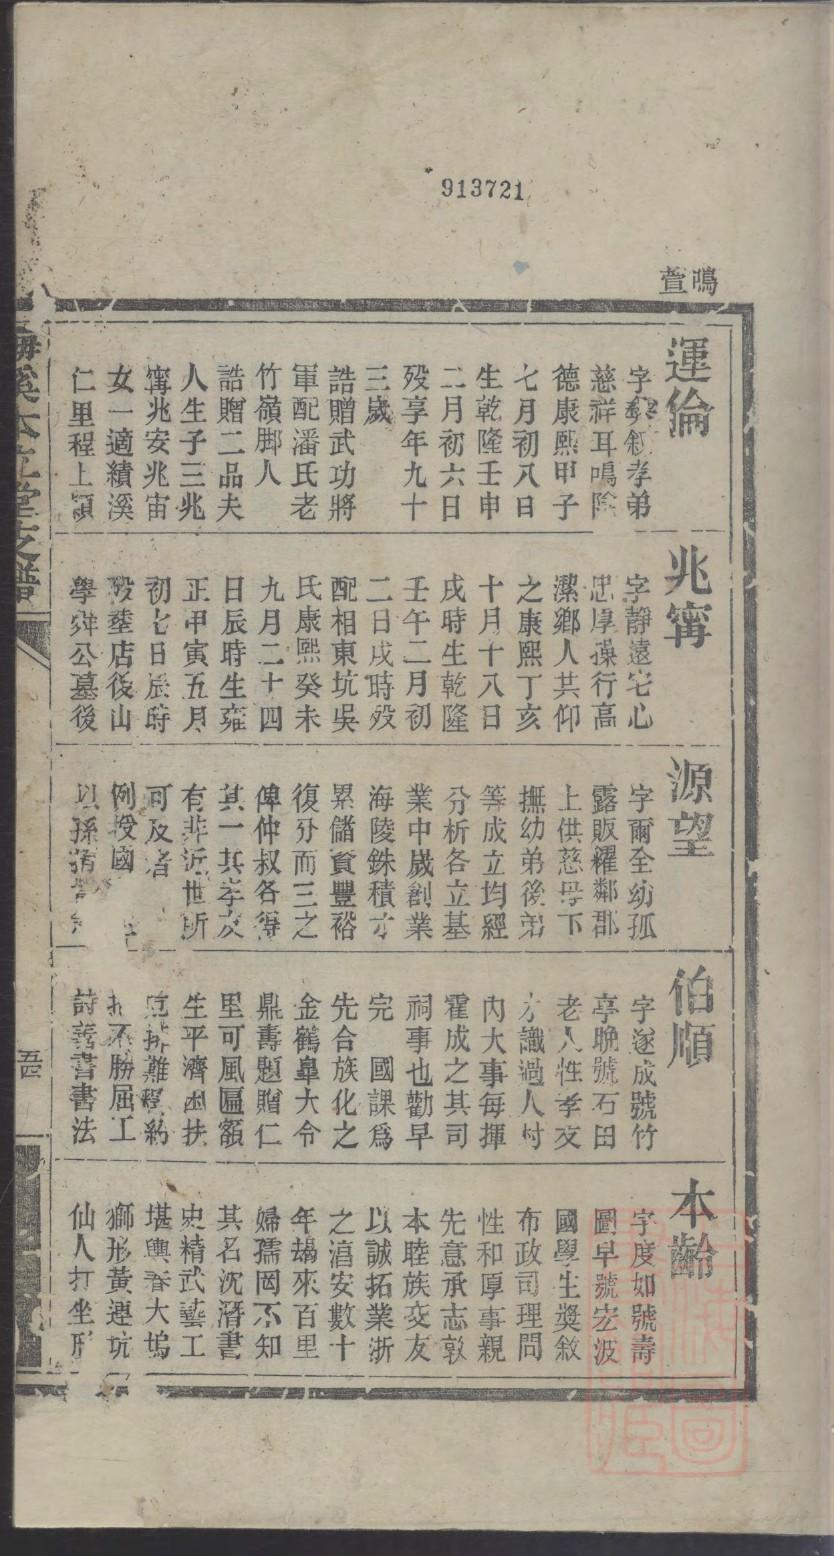 913721
鳴萱
運倫
字彝敘孝弟
慈祥耳鳴陰
德康熙甲子
七月初八日
生乾隆壬申
二月初六日
歿享年九十
三歲
誥贈武功將
軍配潘氏老
竹嶺脚人
誥贈二品夫
人生子三兆
甯兆安兆宙
女一適績溪
仁里程上
兆甯
字靜遠宅心
忠厚操行高
潔鄉人共仰
之康熙丁亥
十月十八日
戌時生乾隆
壬午二月初
二日戌時歿
配相東坑吳
氏康熙癸未
九月二十四
日辰時生雍
正甲寅五月
初七日辰時
歿塟店後山
學舜公墓後
源望
字爾全幼孤
露販糴鄰郡
上供慈母下
撫幼弟後弟
等成立均經
分析各立基
業中歲創業
海陵銖積寸
累儲貲豐裕
復分而三之
俾仲叔各得
其一其孝友
有非近世所
可及者
例授國
以孫
伯順
字遂成號竹
亭晚號石田
老人性孝友
才識過人村
內大事每揮
霍成之其司
祠事也勸早
完　國課爲
先合族化之
金鶴臯大令
鼎壽題贈仁
里可風匾額
生平濟困扶
危排難解紛
指不勝屈工
詩善書書法
本齡
字度如號壽
圃早號宏波
國學生獎敘
布政司理問
性和厚事親
先意承志敦
本睦族交友
以誠拓業浙
之湻安數十
年朅來百里
婦孺罔不知
其名沉潛書
史精武藝工
堪輿春大塢
獅形黃連坑
仙人打坐形
本立堂支譜